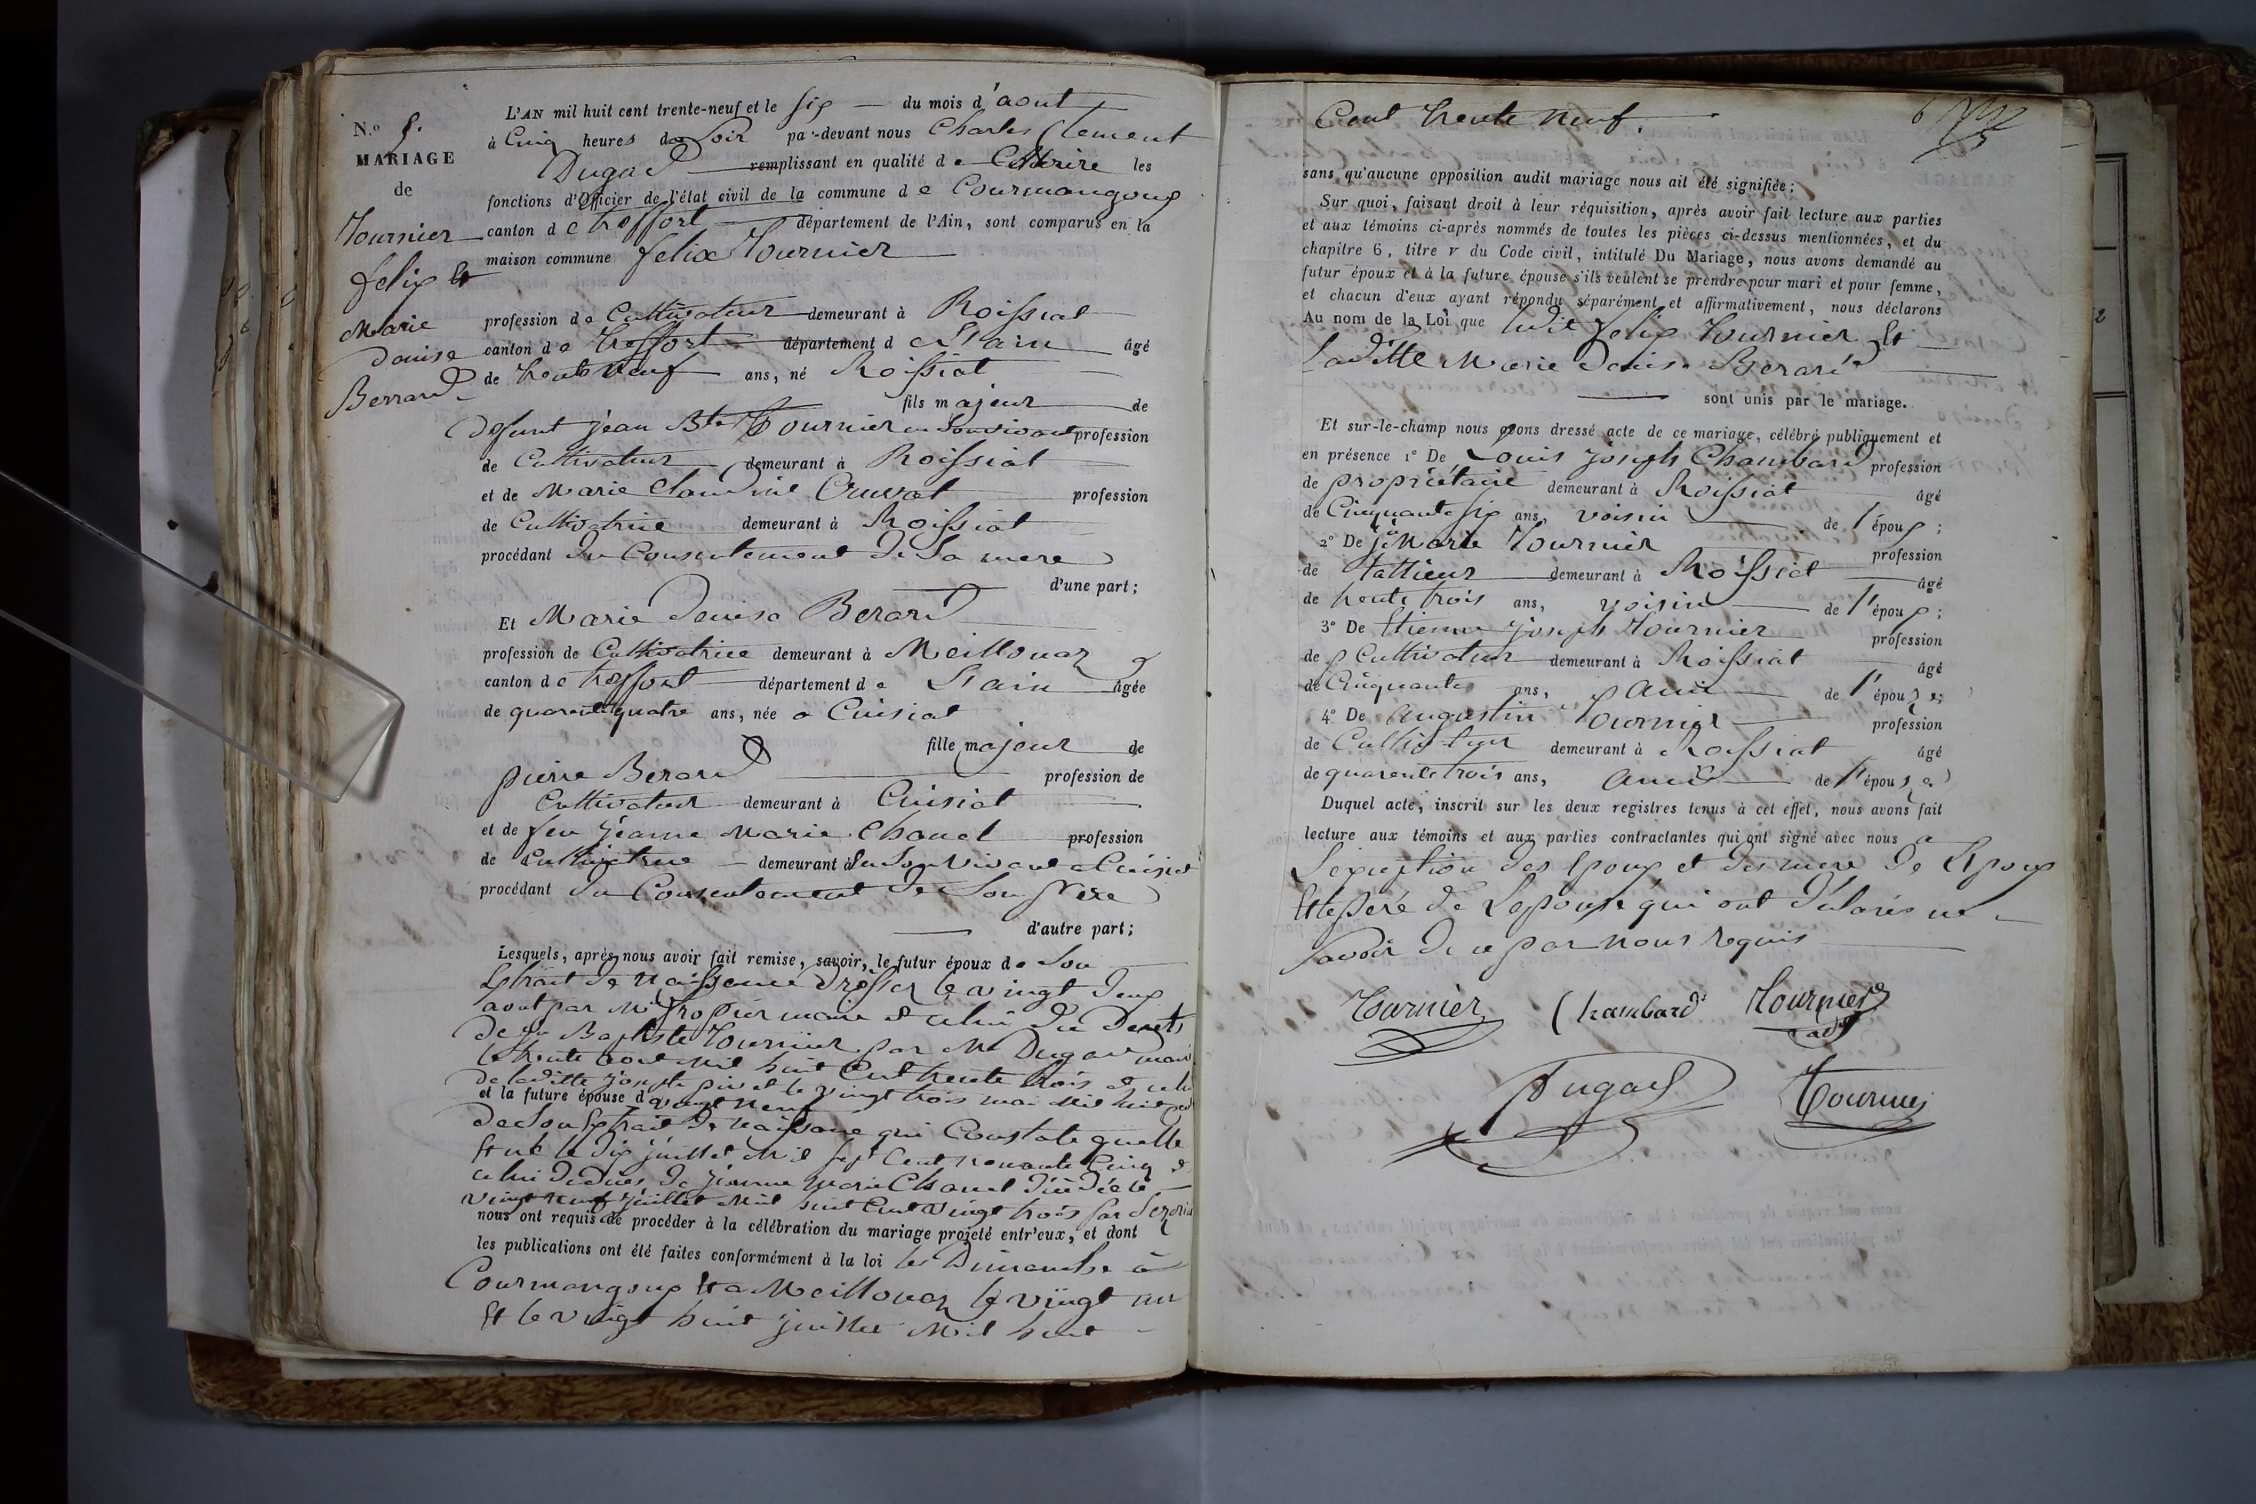 N.° 5.
MARIAGE
de
Tournier
felix et
Marie
denise
Berrard
L'AN mil huit cent trente-neuf et le six du mois d'aout
à Cinq heures du Soir par-devant nous Charles Clement
Dugad remplissant en qualité de Maire les
fonctions d'Officier de l'état civil de la commune de Courmangoux
canton de treffort département de l'Ain, sont comparus en la
maison commune felix Tournier
profession de Cultivateur demeurant à Roissiat
canton de treffort département de L'ain âgé
de trente neuf ans, né Roissiat
fils majeur de
defunt jean Bte Tournier en Son vivant profession
de Cultivateur demeurant à Roissiat
et de Marie Claudine profession
de Cultivatrice demeurant à Roissiat
procédant du Consentement de Sa mere
d'une part;
Et Marie denise Berard
profession de Cultivatrice demeurant à Meillonaz
canton de treffort département de L'ain âgée
de quarante quatre ans, née a Cuisiat
fille majeur de
pierre Berard profession de
Cultivateur demeurant à Cuisiat
et de feu jeanne Marie Chanel profession
de Cultivatrice demeurant à en Son Vivant a Cuisiat
procédant du Consentement de Son Pere
d'autre part;
Lesquels, après nous avoir fait remise, savoir, le futur époux de Son
Extrait de Naissance dresser le vingt deux
aout par Mr maire et celui du Decets
de jn Baptiste Tournier par Mr Dugad maire
le trente aout Mil huit Cent trente trois et celui
de laditte le vingt trois mai Mil huit Cent
et la future épouse d vingt neuf
de Son Extrait de Naissance qui Constate quelle
Et né le dix juillet Mil sept Cent nonante Cinq et
celui de deces de jeanne Marie Chanel décédée le
vingt neuf juillet Mil huit Cent vingt trois par
nous ont requis de procéder à la célébration du mariage projeté entr'eux, et dont
les publications ont été faites conformément à la loi les Dimanche à
Courmangoux Et a Meillonaz le vingt un
Et le vingt huit juillet Mil huit
Cent trente neuf.
sans qu'aucune opposition audit mariage nous ait été signifiée;
Sur quoi, faisant droit à leur réquisition, après avoir fait lecture aux parties
et aux témoins ci-après nommés de toutes les pièces ci-dessus mentionnées, et du
chapitre 6, titre v du Code civil, intitulé Du Mariage, nous avons demandé au
futur époux et à la future épouse s'ils veulent se prendre pour mari et pour femme,
et chacun d'eux ayant répondu séparément et affirmativement, nous déclarons
Au nom de la Loi que ledit felix Tournier Et
Laditte Marie denise Berard
sont unis par le mariage.
Et sur-le-champ nous avons dressé acte de ce mariage, célébré publiquement et
en présence 1° De Louis joseph Chambard profession
de propriétaire demeurant à Roissiat âgé
de Cinquante six ans, voisin de l'époux;
2° De jn Marie Tournier profession
de tallieur demeurant à Roissiat âgé
de trente trois ans, voisin de l'époux;
3° De Etienne joseph Tournier profession
de Cultivateur demeurant à Roissiat âgé
de Cinquante ans, ami de l'épouse;
4° De augustin Tournier profession
de Cultivateur demeurant à Roissiat âgé
de quarente trois ans, ami de l'épouse
Duquel acte, inscrit sur les deux registres tenus à cet effet, nous avons fait
lecture aux témoins et aux parties contractantes qui ont signé avec nous a
L'exception des Epoux et des mere de L'Epoux
Et le pere de L'epouse qui ont déclarés ne
Savoir de ce par nous requis
Tournier Chambard Tournier
Dugad Tournier